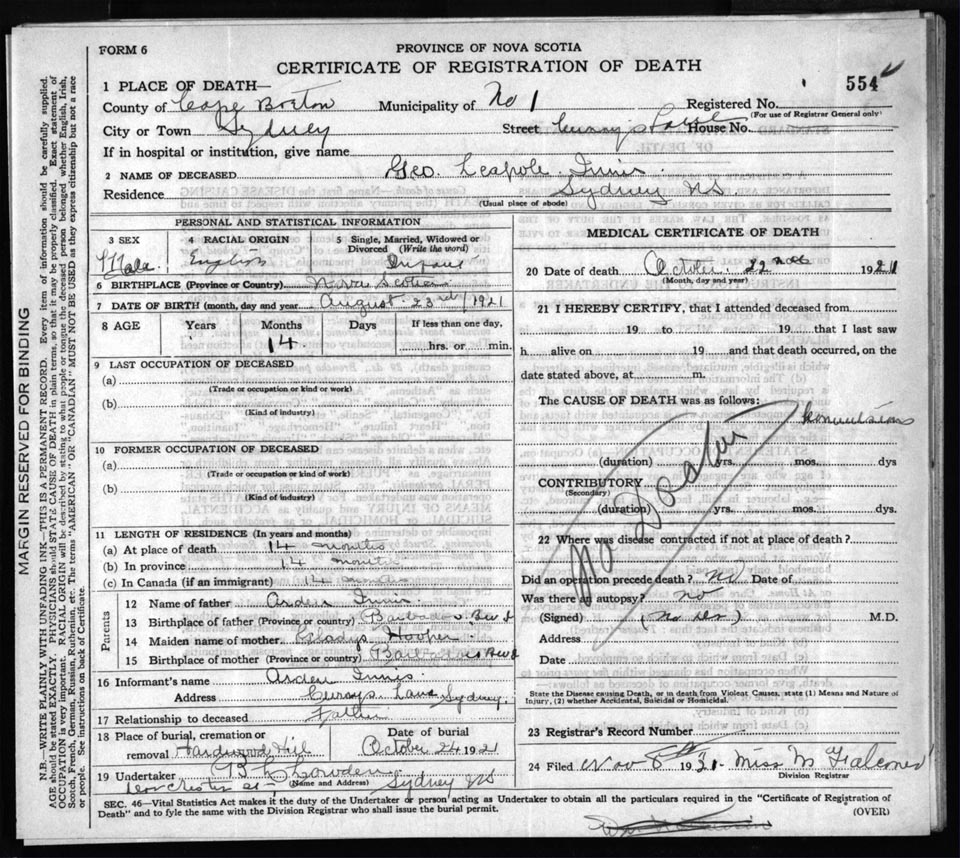 FORM 6
PROVINCE OF NOVA SCOTIA
CERTIFICATE OF REGISTRATION OF DEATH
554
1 PLACE OF DEATH—
County of Cape Breton Municipality of No 1 Registered No.
(For use of Registrar General only)
City or Town Sydney Street House No.
If in hospital or institution, give name
2 NAME OF DECEASED Geo. Leapole Innis
Residence Sydney NS
(Usual place of abode)
PERSONAL AND STATISTICAL INFORMATION
3 SEX Male
4 RACIAL ORIGIN English
5 Single, Married, Widowed or Divorced (Write the word) Infant
6 BIRTHPLACE (Province or Country) Nova Scotia
7 DATE OF BIRTH (month, day and year) August 23rd 1921
8 AGE Years Months Days If less than one day,
14 hrs. or min.
9 LAST OCCUPATION OF DECEASED
(a)
(Trade or occupation or kind or work)
(b)
(Kind of industry)
10 FORMER OCCUPATION OF DECEASED
(a)
(Trade or occupation or kind of work)
(b)
(Kind of industry)
11 LENGTH OF RESIDENCE (In years and months)
(a) At place of death 14 months
(b) In province 14 months
(c) In Canada (if an immigrant) 14 months
Parents
12 Name of father Arden Innis
13 Birthplace of father (Province or country) Barbados B.W.I
14 Maiden name of mother Gladys Hooper
15 Birthplace of mother (Province or country) Barbados BWI
16 Informant's name Arden Innis
Address Lane Sydney
17 Relationship to deceased Father
18 Place of burial, cremation or removal Hardwood Hill
Date of burial October 24 1921
19 Undertaker Lowden
(Name and Address)
Dorchester st Sydney NS
MEDICAL CERTIFICATE OF DEATH
20 Date of death October 22nd 1921
(Month, day and year)
21 I HEREBY CERTIFY, that I attended deceased from
19 to 19 that I last saw
h alive on 19 and that death occurred, on the
date stated above, at m.
The CAUSE OF DEATH was as follows:
Convulsions
(duration) yrs. mos. dys
CONTRIBUTORY
(Secondary)
(duration) yrs. mos. dys.
No Doctor
22 Where was disease contracted if not at place of death?
Did an operation precede death? no Date of
Was there an autopsy? no
(Signed) (no Dr) M.D.
Address
Date
State the Disease causing Death, or in death from Violent Causes, state (1) Means and Nature of
Injury, (2) whether Accidental, Suicidal or Homicidal.
23 Registrar's Record Number
24 Filed Nov 8th 1931 Miss M Falconer
Division Registrar
SEC. 46—Vital Statistics Act makes it the duty of the Undertaker or person acting as Undertaker to obtain all the particulars required in the "Certificate of Registration of
Death" and to fyle the same with the Division Registrar who shall issue the burial permit.
(OVER)
MARGIN RESERVED FOR BINDING
N.B.—WRITE PLAINLY WITH UNFADING INK—THIS IS A PERMANENT RECORD. Every item of information should be carefully supplied.
AGE should be stated EXACTLY. PHYSICIANS should STATE CAUSE OF DEATH in plain terms, so that it may be properly classified. Exact statement of
OCCUPATION is very important. RACIAL ORIGIN will be described by stating to what people or tongue the deceased person belonged whether English, Irish,
Scotch, French, German, Russian, Ruthenian, etc. The terms "AMERICAN" OR "CANADIAN" MUST NOT BE USED as they express citizenship but not a race
or people. See instructions on back of Certificate.